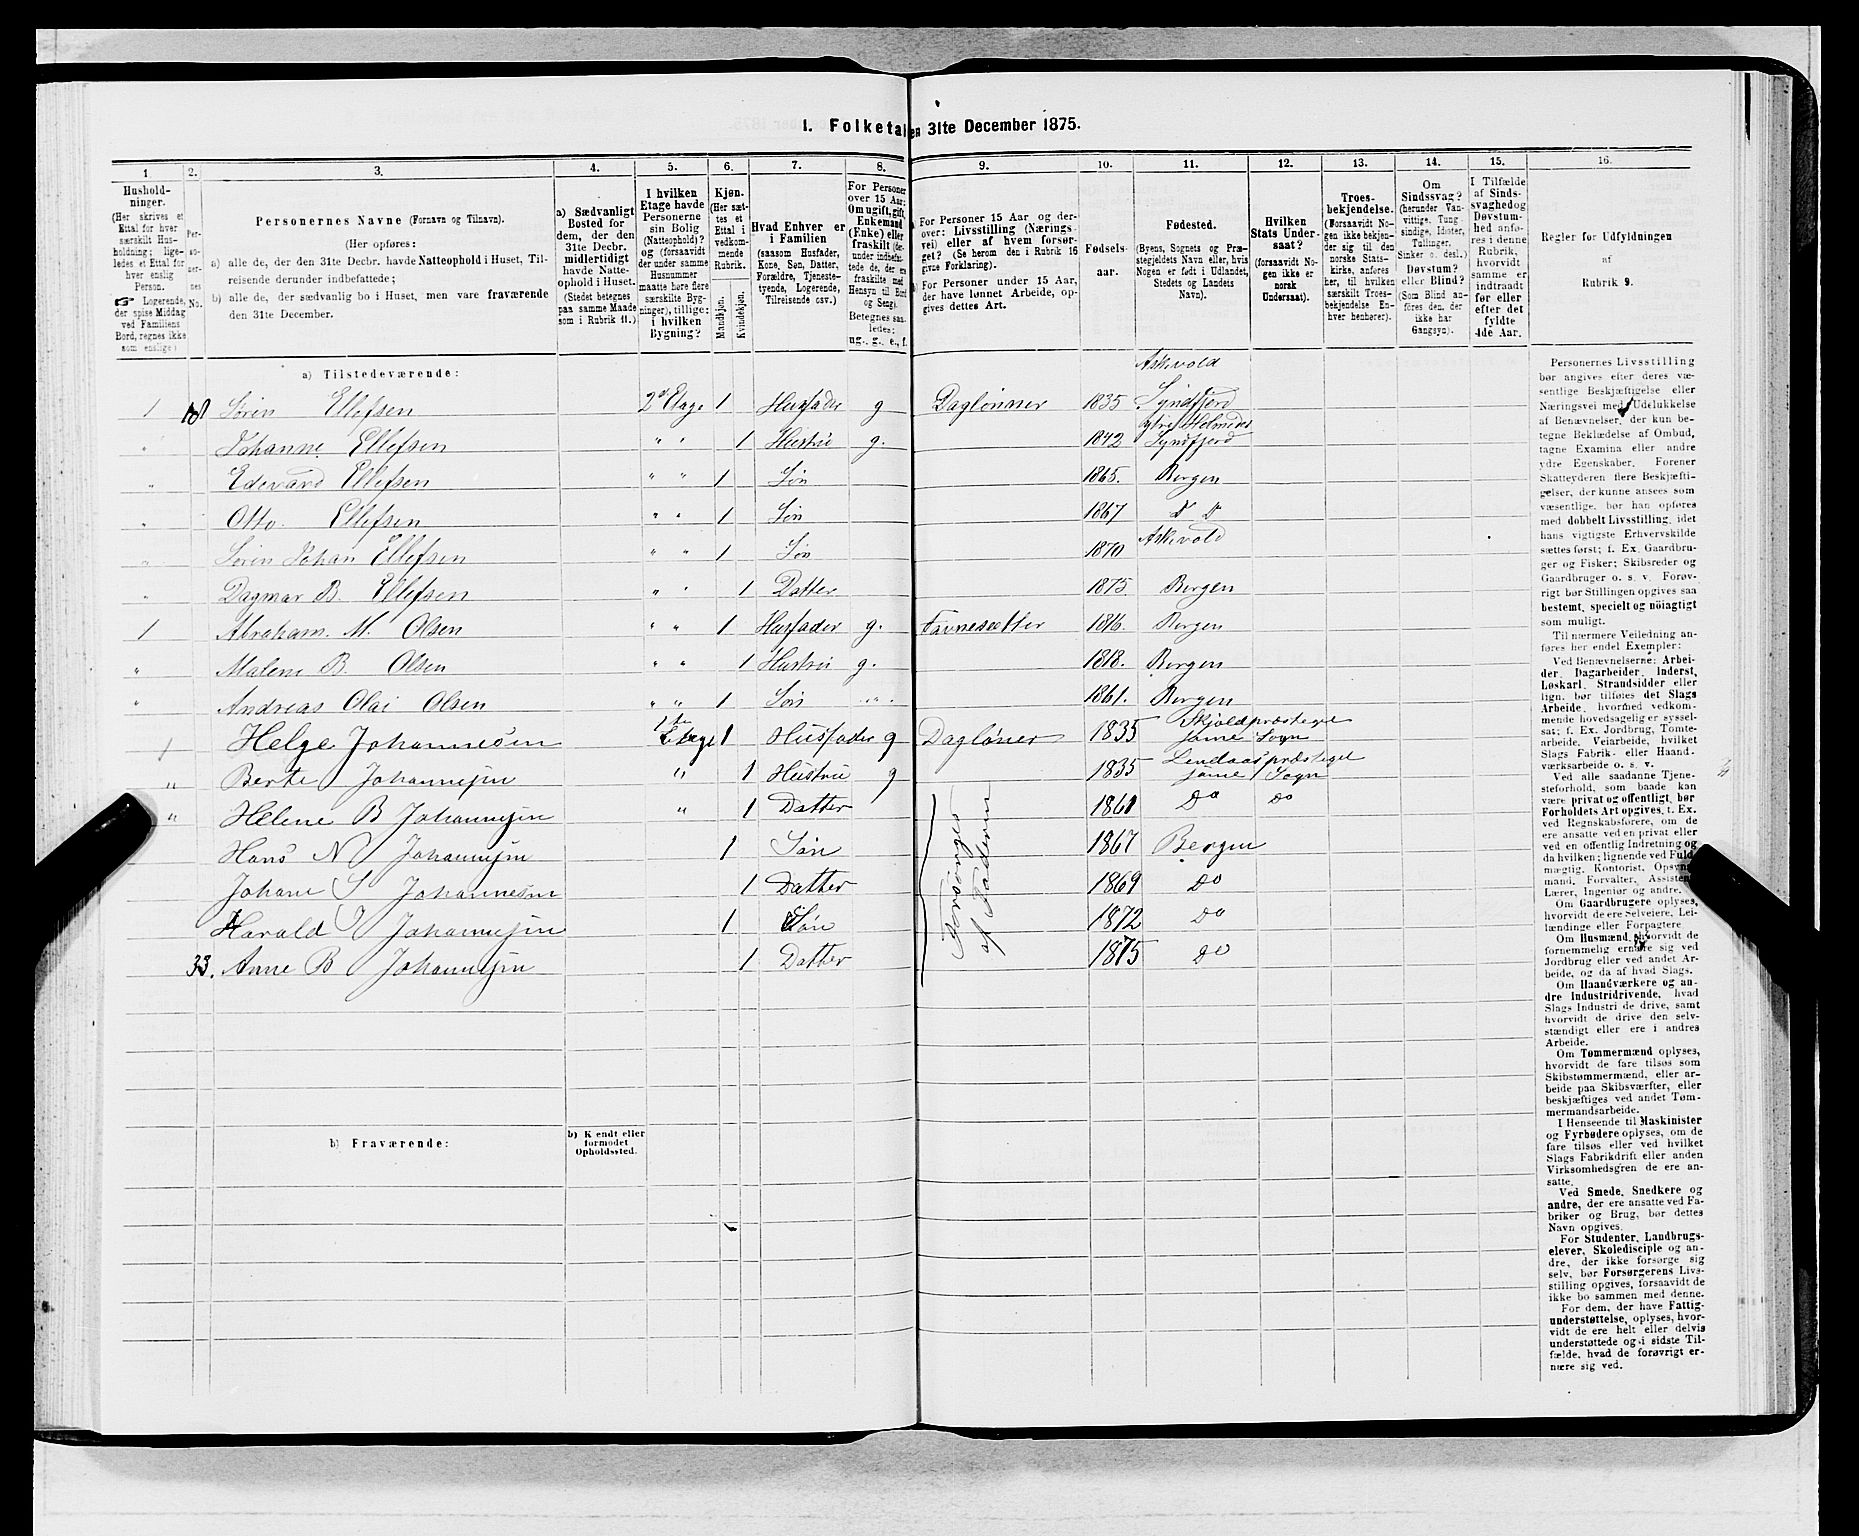 1. Folketal den 31te December 1875.
1. 2. 3. 4. 5. 6. 7. 8. 9. 10. 11. 12. 13. 14. 15. 16.
Hushold-
ninger.
(Her skrives et
Ettal for hver
særskilt Hus-
holdning; lige-
ledes et Ettal for
hver enslig
Person.
☞ Logerende,
der spise Middag
ved Familiens
Bord, regnes ikke
som enslige)
Per-
so-
ner-
nes
No.
Personernes Navne (Fornavn og Tilnavn).
(Her opføres:
a) alle de, der den 31te Decbr. havde Natteophold i Huset, Til-
reisende derunder indbefattede;
b) alle de, der sædvanlig bo i Huset, men vare fraværende
den 31te December.
a) Sædvanligt
Bosted for
dem, der den
31te Decbr.
midlertidigt
havde Natte-
ophold i Huset.
(Stedet betegnes
paa samme Maade
som i Rubrik 11.)
I hvilken
Etage havde
Personerne
sin Bolig
(Natteophold)?
og (forsaavidt
der under samme
Husnummer
maatte høre flere
særskilte Byg-
ninger), tillige:
i hvilken
Bygning?
Kjøn.
(Her sæt-
tes et
Ettal i
vedkom-
mende
Rubrik.
Mandkjøn.
Kvindekjøn.
Hvad Enhver er
i Familien
(saasom Husfader,
Kone, Søn, Datter,
Forældre, Tjeneste-
tyende, Logerende,
Tilreisende osv.)
For Personer
over 15 Aar:
Om ugift, gift,
Enkemand
(Enke) eller
fraskilt (der-
under indbefat-
tede de, der ere
fraskilte med
Hensyn til Bord
og Seng).
Betegnes saa-
ledes:
ug., g., e., f.
For Personer 15 Aar og der-
over: Livsstilling (Nærings-
vei) eller af hvem forsør-
get? (Se herom den i Rubrik 16
givne Forklaring).
For Personer under 15 Aar,
der have lønnet Arbeide, op-
gives dettes Art.
Fødsels-
aar.
Fødested.
(Byens, Sognets og Præ-
stegjeldets Navn eller, hvis
Nogen er født i Udlandet,
Stedets og Landets
Navn).
Hvilken
Stats Under-
saat?
(forsaavidt No-
gen ikke er
norsk
Undersaat).
Troes-
bekjendelse.
(Forsaavidt No-
gen ikke bekjen-
der sig til den
norske Stats-
kirke, anføres
her, til hvilken
særskilt Troes-
bekjendelse En-
hver henhører).
Om
Sindssvag?
(herunder Van-
vittige, Tung-
sindige, Idioter,
Tullinger,
Sinker o. desl.)
Døvstum?
eller Blind?
(Som Blind an-
føres den, der
ikke har
Gangsyn).
I Tilfælde
af Sinds-
svaghed og
Døvstum-
hed anfø-
res i denne
Rubrik,
hvorvidt
samme er
indtraadt
før eller
efter det
fyldte
4de Aar.
Regler for Udfyldningen
af
Rubrik 9.
a) Tilstedeværende:
Askevold
1 Sören Ellefsen 2d Etage 1 Husfader g Daglönner 1835 Syndfjord
" Johanne Ellefsen " " 1 Hustru g. 1842 Syndfjord
" Edevard Ellefsen " " 1 Sön 1865. Bergen
" Otto Ellefsen " " 1 Sön 1867 D D
" Sören Johan Ellefsen " " 1 Sön 1870 Askevold
" Dagmar B. Ellefsen " " 1 Datter 1875. Bergen
1 Abraham. M. Olsen " " 1 Husfader g. Favnesætter 1816. Bergen
" Malene B. Olsen " " 1 Hustru g. 1818. Bergen
" Andreas Olai Olsen " " 1 Sön " 1861. Bergen
1 Helge Johannesen 1te Etage 1 Husfader g Daglöner 1835 Skjoldpræstegel same Sogn
" Berte Johannesen " 1 Hustru g 1835 Lendaas præstegel same Sogn
" Helene B Johannesen " 1 Datter 1861 Do Do
Hans N Johannesen 1 Sön 1867 Bergen
Johane S Johannesen 1 Datter 1869 Do
Harald J Johannesen 1 Sön 1872 Do
33. Anne B Johannesen 1 Datter 1875 Do
Forsörges
af Faderen
b) Fraværende:
b) Kjendt eller
formodet
Opholdssted.
Personernes Livsstilling
bør angives efter deres væ-
sentlige Beskjæftigelse eller
Næringsvei med Udelukkelse
af Benævnelser, der kun be-
tegne Beklædelse af Ombud,
tagne Examina eller andre
ydre Egenskaber. Forener
Skatteyderen flere Beskjæfti-
gelser, der kunne ansees som
væsentlige, bør han opføres
med dobbelt Livsstilling, idet
hans vigtigste Erhvervskilde
sættes først; f. Ex. Gaardbru-
ger og Fisker; Skibsreder og
Gaardbruger o. s. v. Forøv-
rigt bør Stillingen opgives saa
bestemt, specielt og nöiagtigt
som muligt.
Til nærmere Veiledning an-
føres her endel Exempler:
Ved Benævnelserne: Arbei-
der, Dagarbeider, Inderst,
Løskarl, Strandsidder eller
lign. bør tilføies det Slags
Arbeide, hvormed vedkom-
mende hovedsagelig er syssel-
sat; f. Ex. Jordbrug, Tomte-
arbeide, Veiarbeide, hvilket
Slags Fabrik- eller Haand-
værksarbeide o. s. v.
Ved alle saadanne Tjene-
steforhold, som baade kan
være privat og offentligt, bør
Forholdets Art opgives, t. Ex.
ved Regnskabsførere, om de
ere ansatte ved en privat eller
ved en offentlig Indretning og
da hvilken; lignende ved Fuld-
mægtig, Kontorist, Opsyns-
mand, Forvalter, Assistent,
Lærer, Ingeniør og andre.
Om Gaardbrugere oplyses,
hvorvidt de ere Selveiere, Lei-
lændinge eller Forpagtere
Om Husmænd, hvorvidt de
fornemmelig ernære sig ved
Jordbrug eller ved andet Ar-
beide, og da af hvad Slags.
Om Haandværkere og an-
dre Industridrivende, hvad
Slags Industri de drive, samt
hvorvidt de drive den selv-
stændigt eller ere i andres
Arbeide.
Om Tømmermænd oplyses,
hvorvidt de fare tilsøs som
Skibstømmermænd, eller ar-
beide paa Skibsværfter, eller
beskjæftiges ved andet Tøm-
mermandsarbeide.
I Henseende til Maskinister
og Fyrbødere oplyses, om de
fare tilsøs eller ved hvilket
Slags Fabrikdrift eller anden
Virksomhedsgren de ere an-
satte.
Ved Smede, Snedkere og
andre, der ere ansatte ved Fa-
briker og Brug, bør dettes
Navn opgives.
For Studenter, Landbrugs-
elever, Skoledisciple og an-
dre, der ikke forsørge sig
selv, bør Forsørgerens Livs-
stilling opgives, forsaavidt de
ikke bo sammen med denne.
For dem, der have Fattig-
understøttelse, oplyses, hvor-
vidt de ere helt eller delvis
understøttede og i sidste Til-
fælde, hvad de forøvrigt er-
nære sig ved.